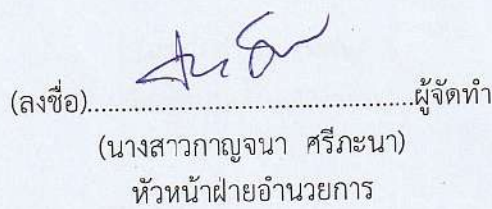 (ลงชื่อ)......................................................ผู้จัดทำ
(นางสาวกาญจนา ศรีภะนา)
หัวหน้าฝ่ายอำนวยการ